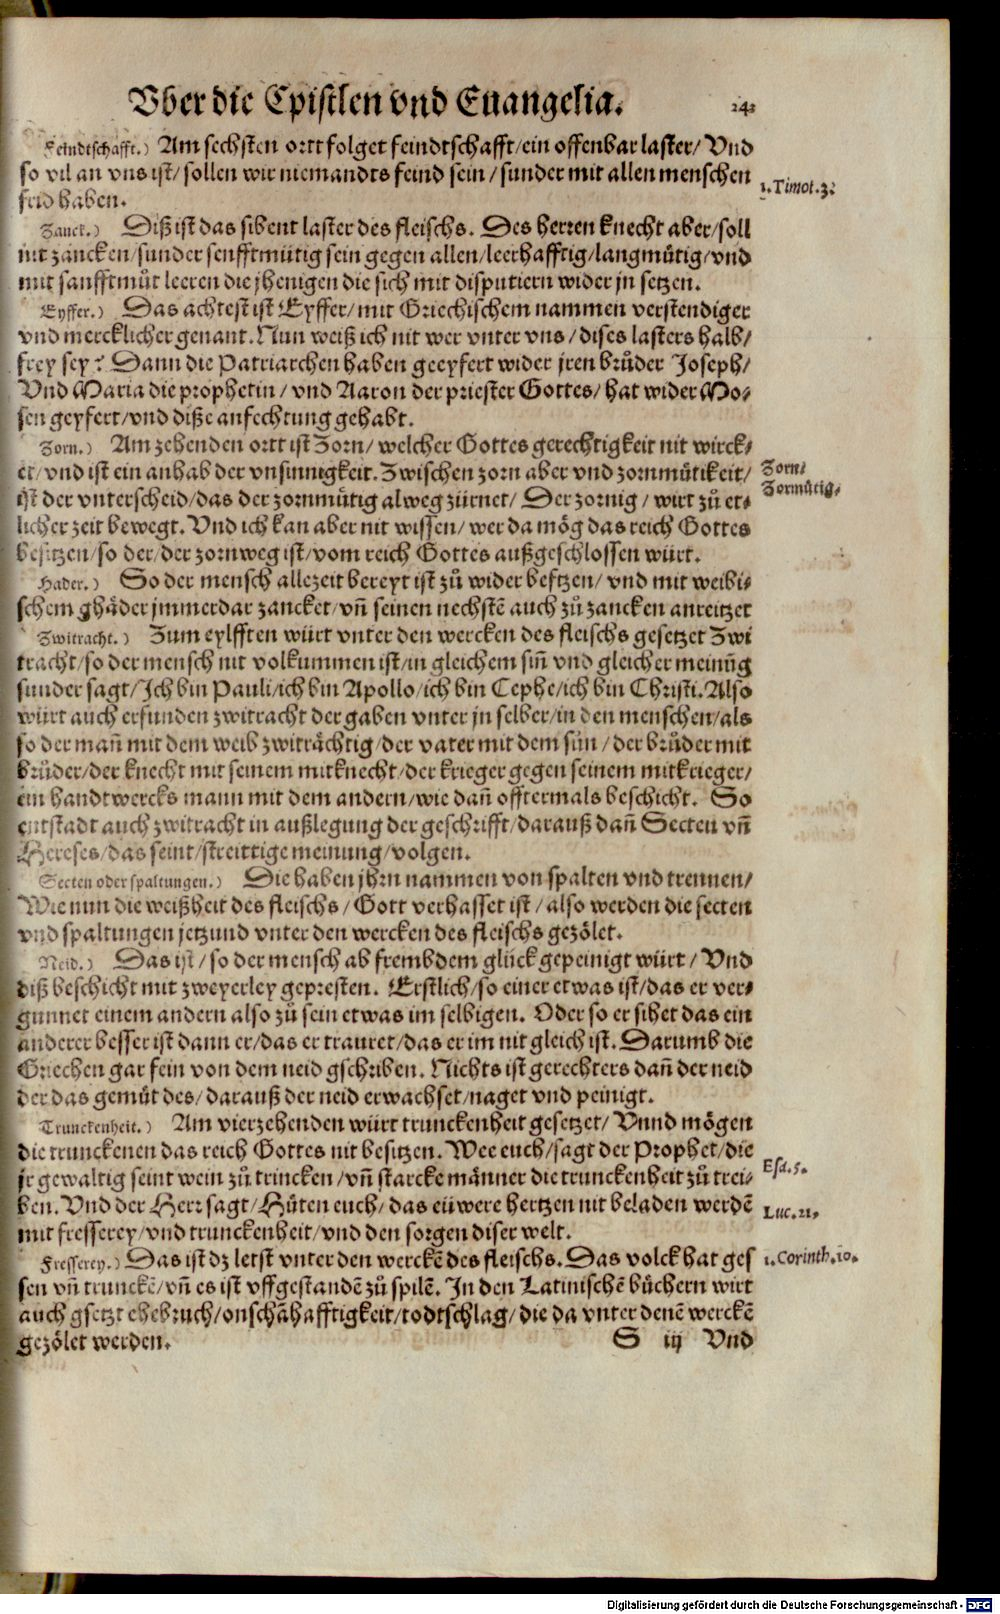 Vber die Epistlen vnd Euangelia. 243
Feindtschafft.) Am sechsten ortt folget feindtschafft/ein offenbar laster/Vnd
so vil an vns ist/sollen wir niemandts feind sein/sunder mit allen menschen
frid haben.
1.Timot.3.
Zanck.) Diß ist das sibent laster des fleischs. Des herren knecht aber/soll
nit zancken/sunder senfftmütig sein gegen allen/leerhafftig/langmütig/vnd
mit sanfftmůt leeren die jhenigen die sich mit disputiern wider jn setzen.
Eyffer.) Das achtest ist Eyffer/mit Griechischem nammen verstendiger
vnd mercklicher genant. Nun weiß ich nit wer vnter vns/dises lasters halb/
frey sey? Dann die Patriarchen haben geeyfert wider jren brůder Joseph/
Vnd Maria die prophetin/vnd Aaron der priester Gottes/hat wider Mo⸗
sen geyfert/vnd diße anfechtung gehabt.
Zorn.) Am zehenden ortt ist Zorn/welcher Gottes gerechtigkeit nit wirck⸗
et/vnd ist ein anhab der vnsinnigkeit. Zwischen zorn aber vnd zornmütikeit/
ist der vnterscheid/das der zornmütig alweg zürnet/Der zornig/wirt zů et⸗
licher zeit bewegt. Vnd ich kan aber nit wissen/wer da mög das reich Gottes
besitzen/so der/der zornweg ist/vom reich Gottes außgeschlossen würt.
Zorn/
Zormütig/
Hader.) So der mensch allezeit bereyt ist zů wider beftzen/vnd mit weibi⸗
schem ghäder jmmerdar zancket/vñ seinen nechstē auch zů zancken anreitzet
Zwitracht.) Zum eylfften würt vnter den wercken des fleischs gesetzet Zwi
tracht/so der mensch nit volkummen ist/in gleichem siñ vnd gleicher meinūg
sunder sagt/Ich bin Pauli/ich bin Apollo/ich bin Cephe/ich bin Christi. Also
würt auch erfunden zwitracht der gaben vnter jn selber/in den menschen/als
so der mañ mit dem weib zwiträchtig/der vater mit dem sun/der brůder mit
brůder/der knecht mit seinem mitknecht/der krieger gegen seinem mitkrieger/
ein handtwercks mann mit dem andern/wie dañ offtermals beschicht. So
entstadt auch zwitracht in außlegung der geschrifft/darauß dañ Secten vñ
Hereses/das seint/streittige meinung/volgen.
Secten oder spaltungen.) Die haben jhrn nammen von spalten vnd trennen/
Wie nun die weißheit des fleischs/Gott verhasset ist/also werden die secten
vnd spaltungen jetzund vnter den wercken des fleischs gezölet.
Neid.) Das ist/so der mensch ab frembdem glück gepeinigt würt/Vnd
diß beschicht mit zweyerley gepresten. Erstlich/so einer etwas ist/das er ver⸗
gunnet einem andern also zů sein etwas im selbigen. Oder so er sihet das ein
anderer besser ist dann er/das er trauret/das er im nit gleich ist. Darumb die
Griechen gar fein von dem neid gschriben. Nichts ist gerechters dañ der neid
der das gemůt des/darauß der neid erwachset/naget vnd peinigt.
Trunckenheit.) Am vierzehenden würt trunckenheit gesetzet/Vnnd mögen
die trunckenen das reich Gottes nit besitzen. Wee euch/sagt der Prophet/die
jr gewaltig seint wein zů trincken/vñ starcke männer die trunckenheit zů trei⸗
ben. Vnd der Herr sagt/Hüten euch/das eüwere hertzen nit beladen werdē
mit fresserey/vnd trunckenheit/vnd den sorgen diser welt.
Esa.5.
Luc.21.
Fresserey.) Das ist dz letst vnter den werckē des fleischs. Das volck hat ges
sen vñ trunckē/vñ es ist vffgestandē zů spilē. In den Latinischē büchern wirt
auch gsetzt ehebruch/onschāhafftigkeit/todtschlag/die da vnter denē werckē
gezölet werden.
1.Corinth.10.
S iij Vnd
Digitalisierung gefördert durch die Deutsche Forschungsgemeinschaft - DFG